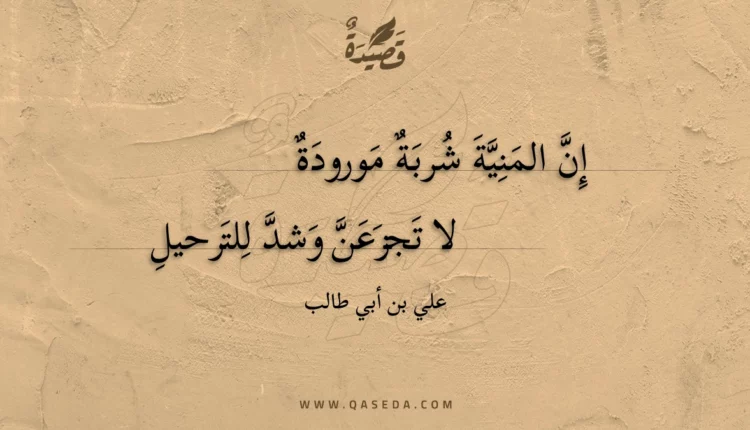 قَصِيدَةٌ
إِنَّ المَنِيَّةَ شُربَةٌ مَورودَةٌ
لا تَجزَعَنَّ وَشدَّ لِلتَرحيلِ
علي بن أبي طالب
WWW.QASEDA.COM